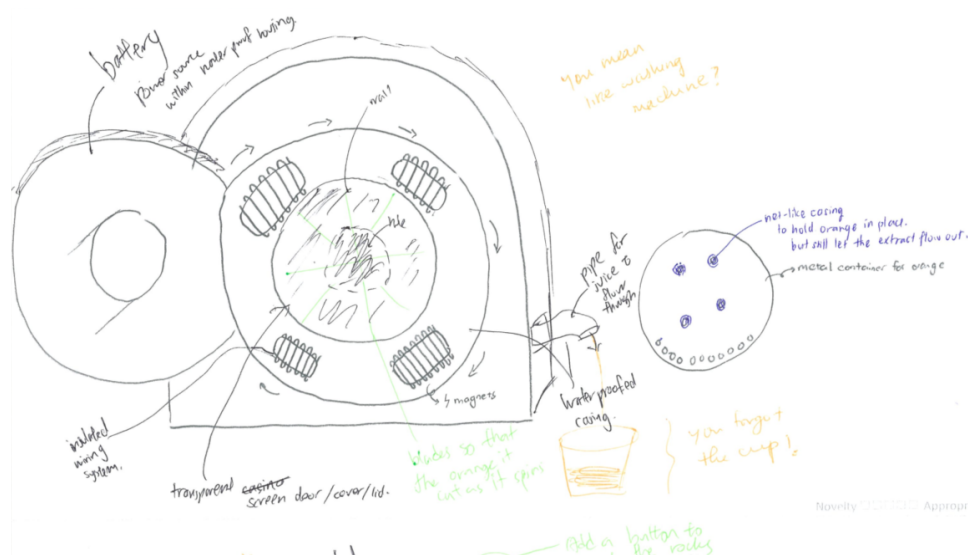 battery
Power source
within waterproof housing
You mean
like washing
machine?
hole
net-like casing
to hold orange in place.
but still let the extract flow out.
metal container for orange
pipe for
juice to
flow
through
4 magnets
waterproofed
casing.
insulated
wiring
system.
transparent casing
screen door/cover/lid.
blades so that
the orange it
cut as it spins
You forgot
the cup!
Novelty
Appropr
Add a button to